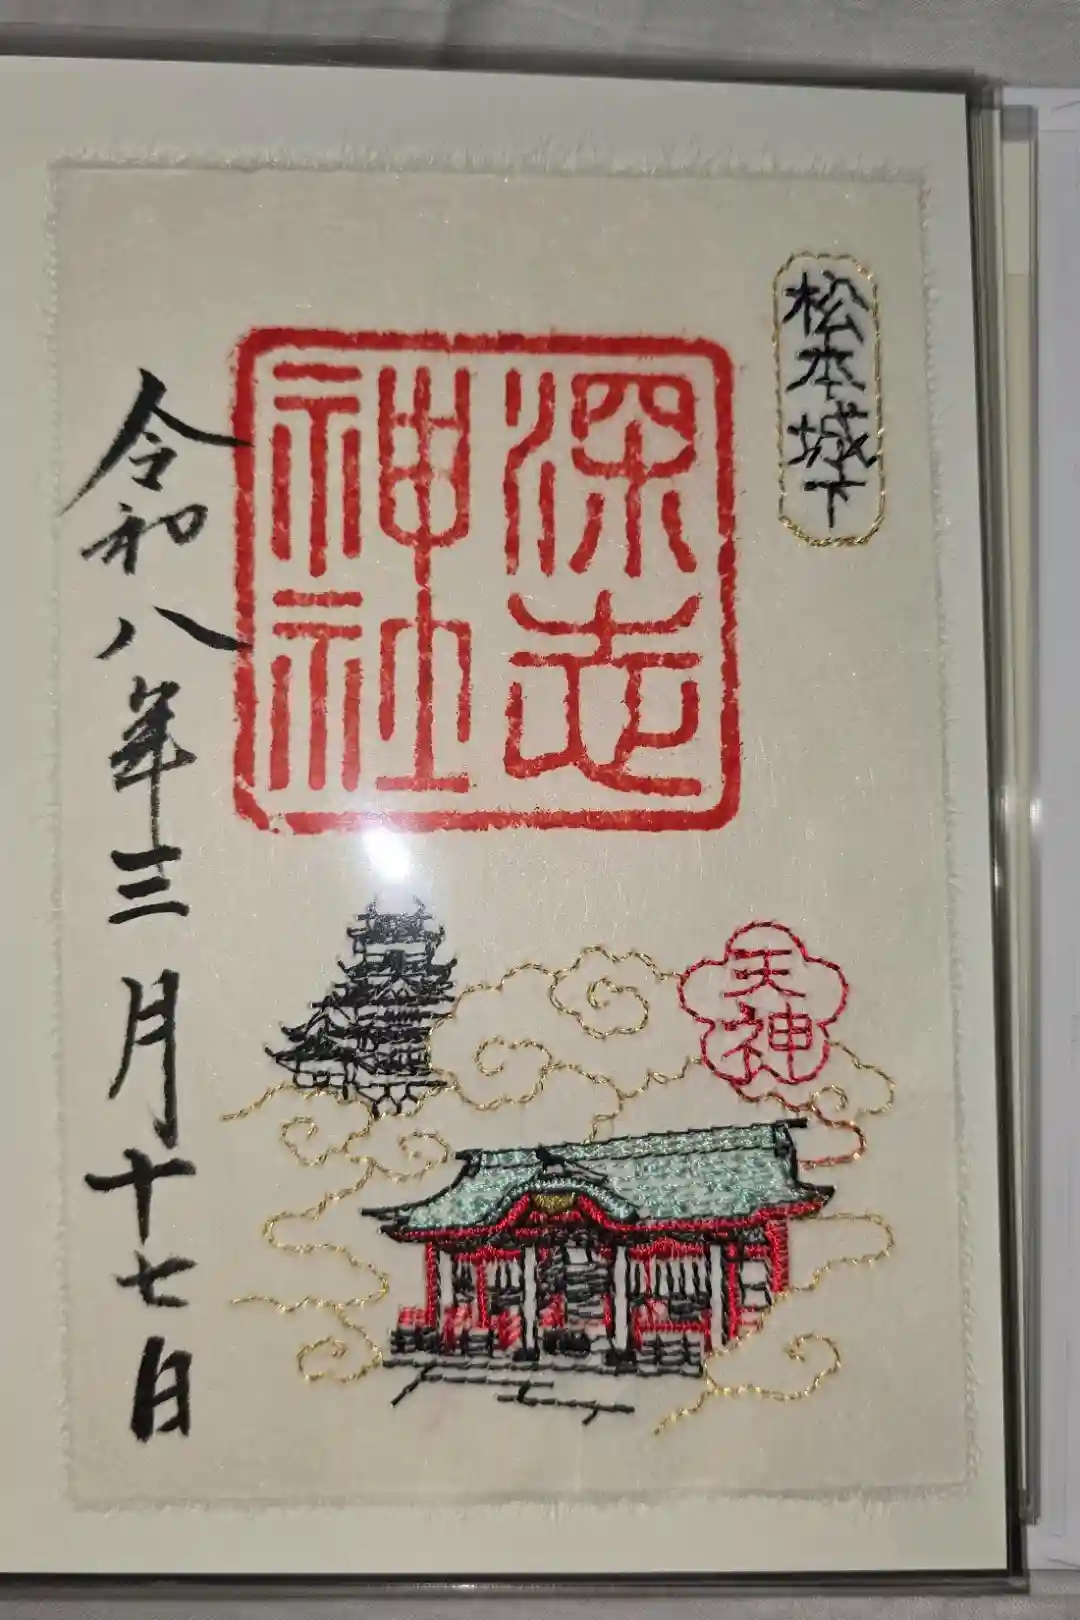 松本城下
深志
神社
天神
令和八年三月十七日